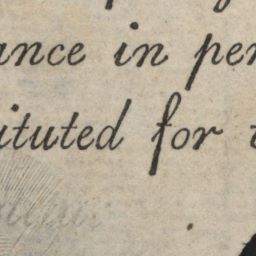 ance in per
ituted for t